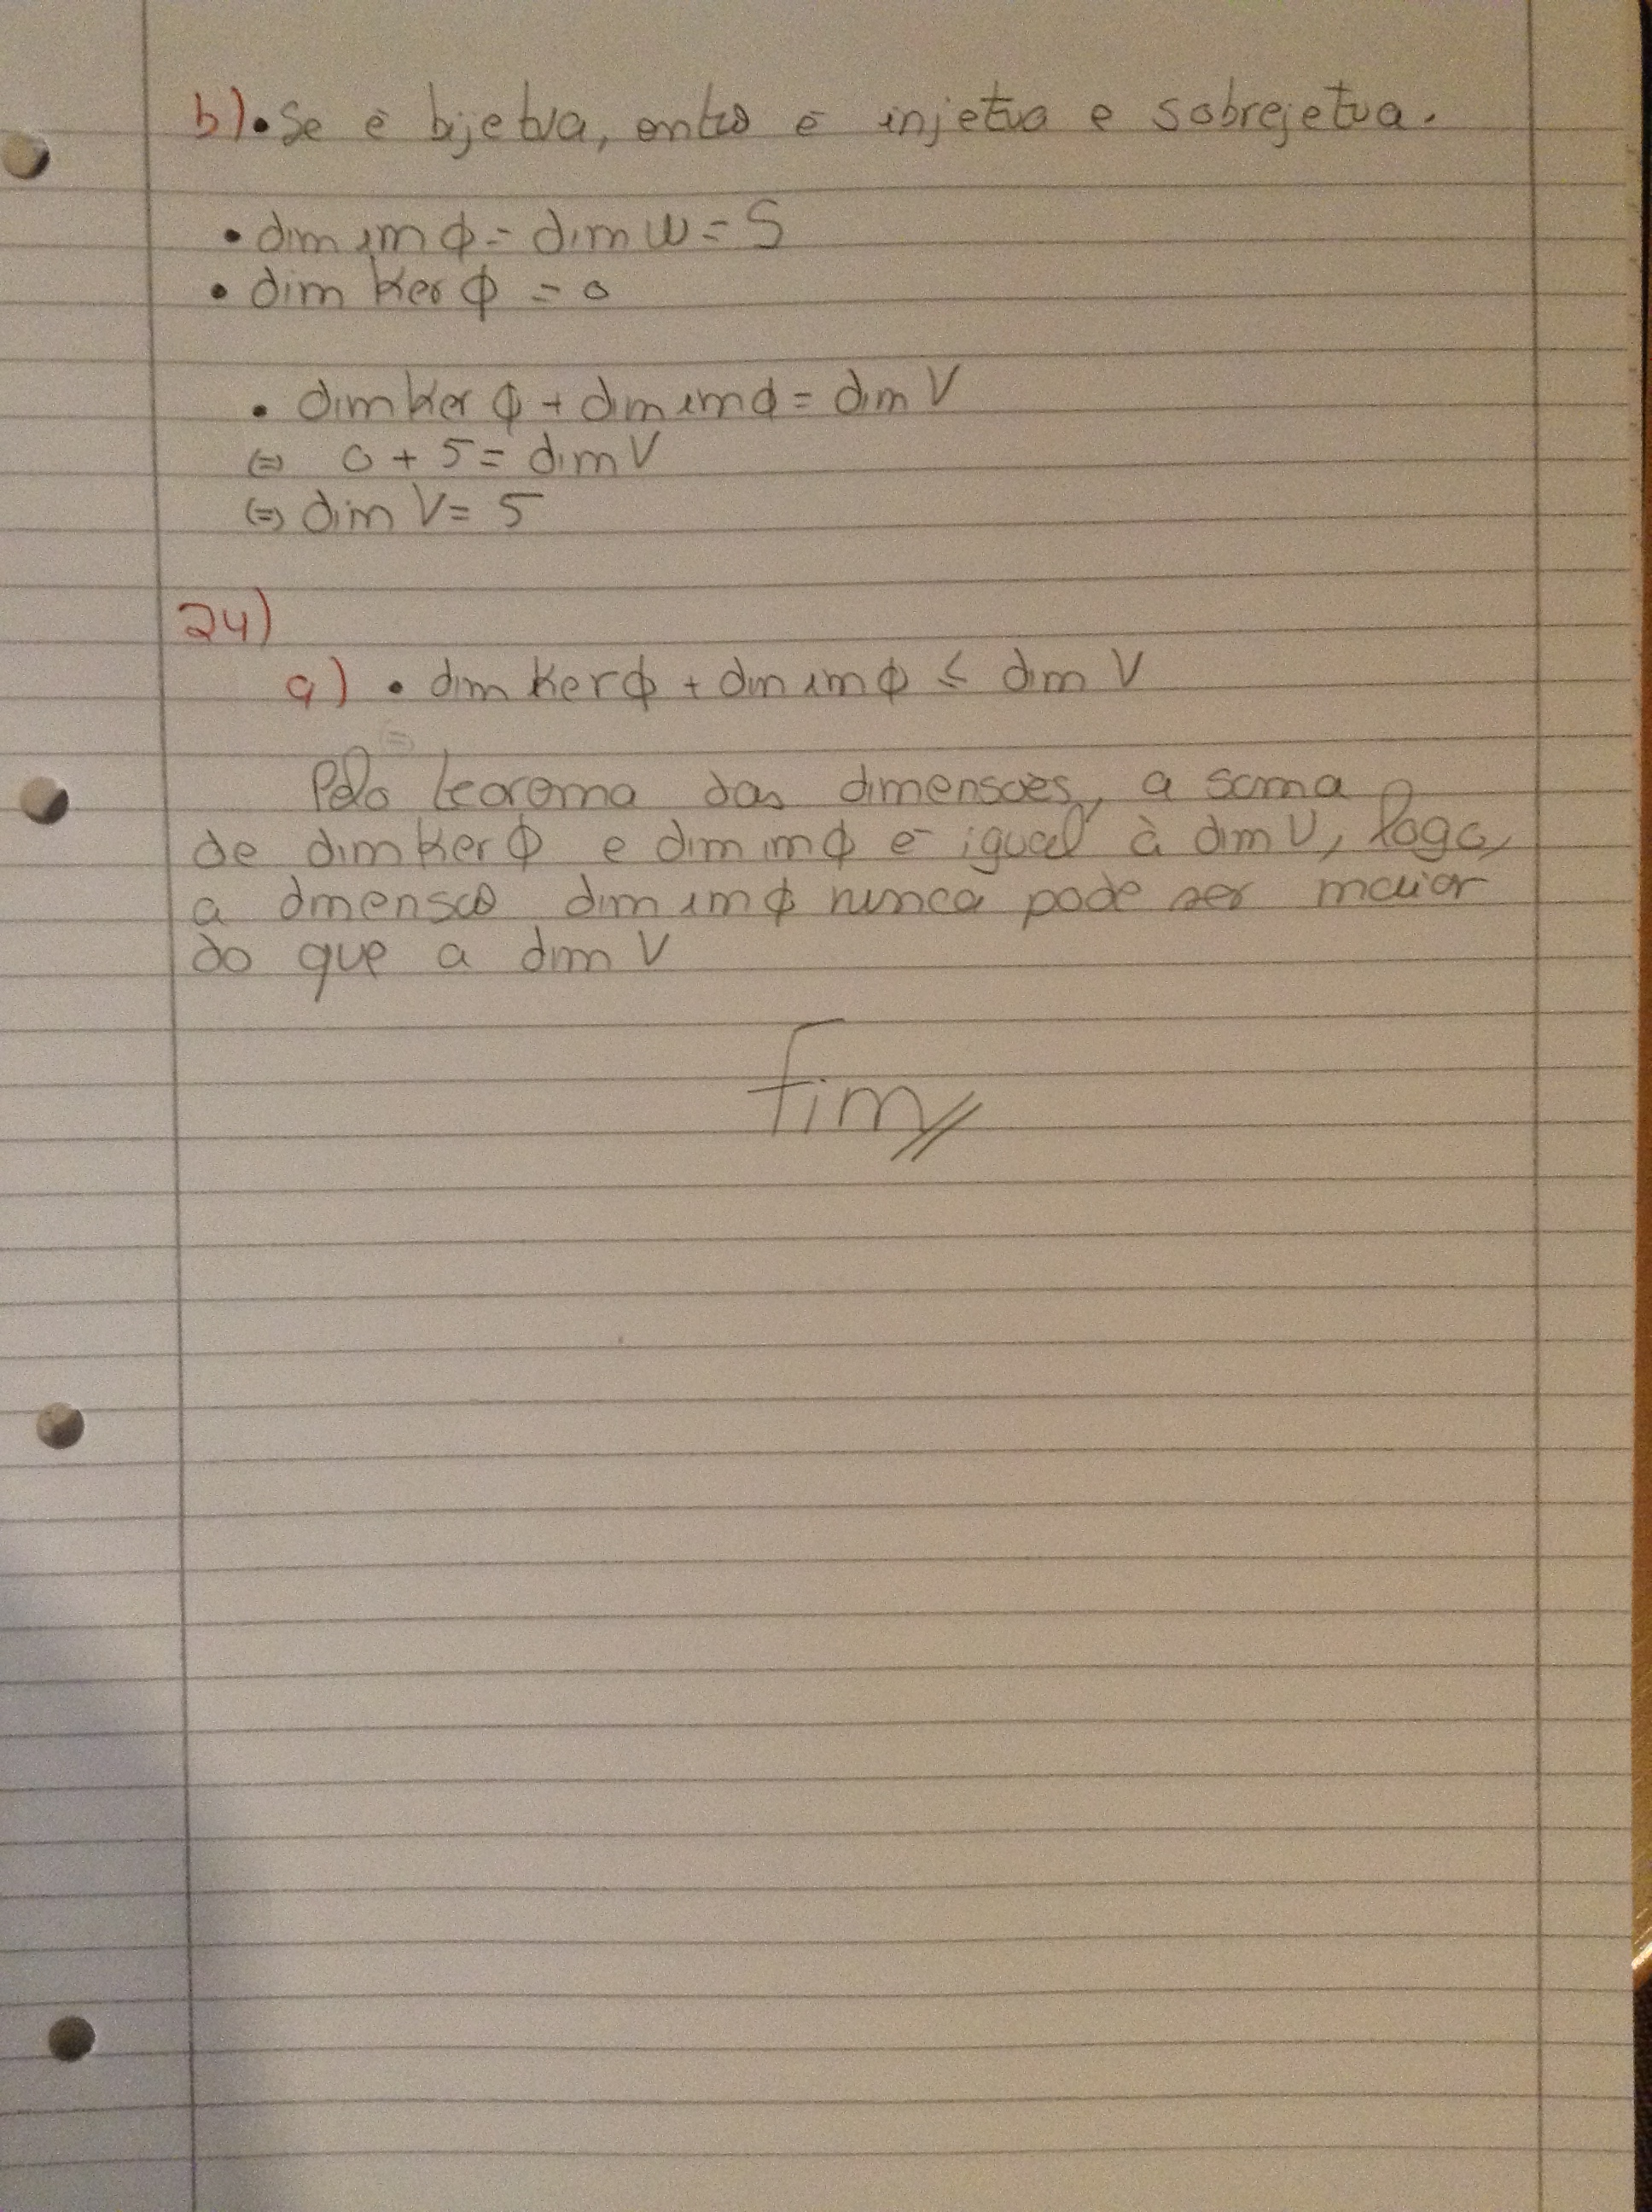 b) • Se é bijetiva, então é injetiva e sobrejetiva.
• dim im ϕ = dim W = 5
• dim Ker ϕ = 0
• dim Ker ϕ + dim im ϕ = dim V
(=) 0 + 5 = dim V
(=) dim V = 5
24)
a) • dim Ker ϕ + dim im ϕ ≤ dim V
(=)
Pelo teorema das dimensões, a soma
de dim Ker ϕ e dim im ϕ é igual à dim V, logo,
a dimensão dim im ϕ nunca pode ser maior
do que a dim V
Fim//